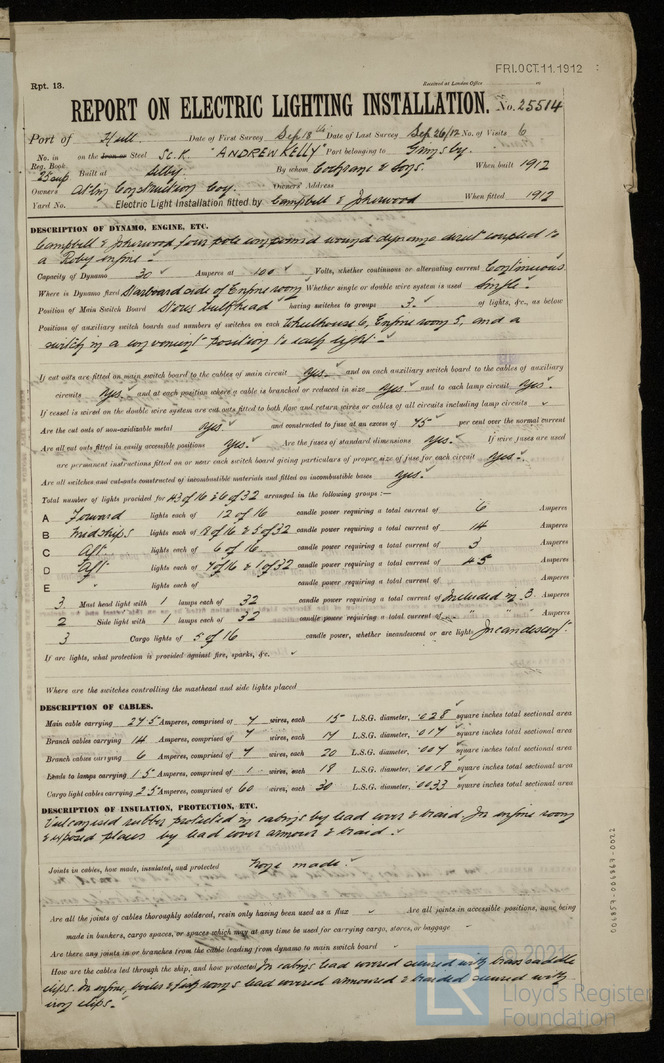 FRI.OCT.11.1912
Rpt. 13.
Received at London Office
REPORT ON ELECTRIC LIGHTING INSTALLATION. No. 25514
Port of Hull Date of First Survey Sep 18th Date of Last Survey Sep 26/12 No. of Visits 6
No. in Reg. Book on the Iron or Steel Sc. K. "ANDREW KELLY" Port belonging to Grimsby.
25 sup Built at Selby By whom Cochrane & Sons. When built 1912
Owners Albn Construction Coy. Owners' Address
Yard No. Electric Light Installation fitted by Campbell & Isherwood When fitted 1912
DESCRIPTION OF DYNAMO, ENGINE, ETC.
Campbell & Isherwood four pole compound wound dynamo direct coupled to
a Roby engine.
Capacity of Dynamo 30 Amperes at 100 Volts, whether continuous or alternating current Continuous
Where is Dynamo fixed Starboard side of Engine room Whether single or double wire system is used Single.
Position of Main Switch Board Stores bulkhead having switches to groups 3. of lights, &c., as below
Positions of auxiliary switch boards and numbers of switches on each Wheelhouse 6, Engine room 5, and a
switch in a convenient position to scup light.
If cut outs are fitted on main switch board to the cables of main circuit Yes. and on each auxiliary switch board to the cables of auxiliary
circuits Yes and at each position where a cable is branched or reduced in size Yes and to each lamp circuit Yes.
If vessel is wired on the double wire system are cut outs fitted to both flow and return wires or cables of all circuits including lamp circuits
Are the cut outs of non-oxidizable metal Yes and constructed to fuse at an excess of 45 per cent over the normal current
Are all cut outs fitted in easily accessible positions Yes. Are the fuses of standard dimensions Yes. If wire fuses are used
are permanent instructions fitted on or near each switch board giving particulars of proper size of fuse for each circuit Yes.
Are all switches and cut-outs constructed of incombustible materials and fitted on incombustible bases Yes.
Total number of lights provided for 43 of 16 & 6 of 32 arranged in the following groups :—
A Forward lights each of 12 of 16 candle power requiring a total current of 6 Amperes
B Midships lights each of 18 of 16 & 5 of 32 candle power requiring a total current of 14 Amperes
C Aft. lights each of 6 of 16 candle power requiring a total current of 3 Amperes
D Aft. lights each of 7 of 16 & 1 of 32 candle power requiring a total current of 4.5 Amperes
E " lights each of candle power requiring a total current of Amperes
3 Mast head light with 1 lamps each of 32 candle power requiring a total current of Included in B. Amperes
2 Side light with 1 lamps each of 32 candle power requiring a total current of " " Amperes
3 Cargo lights of 5 of 16 candle power, whether incandescent or arc lights Incandescent.
If arc lights, what protection is provided against fire, sparks, &c.
Where are the switches controlling the masthead and side lights placed
DESCRIPTION OF CABLES.
Main cable carrying 27.5 Amperes, comprised of 7 wires, each 15 L.S.G. diameter, .028 square inches total sectional area
Branch cables carrying 14 Amperes, comprised of 7 wires, each 17 L.S.G. diameter, .017 square inches total sectional area
Branch cables carrying 6 Amperes, comprised of 7 wires, each 20 L.S.G. diameter, .007 square inches total sectional area
Leads to lamps carrying 1.5 Amperes, comprised of 1 wires, each 18 L.S.G. diameter, .0018 square inches total sectional area
Cargo light cables carrying 2.5 Amperes, comprised of 60 wires, each 30 L.S.G. diameter, .0033 square inches total sectional area
DESCRIPTION OF INSULATION, PROTECTION, ETC.
Vulcanised rubber protected in cabins by lead cover & braid. In engine room
& exposed places by lead cover armour & braid.
Joints in cables, how made, insulated, and protected None made.
Are all the joints of cables thoroughly soldered, resin only having been used as a flux Are all joints in accessible positions, none being
made in bunkers, cargo spaces, or spaces which may at any time be used for carrying cargo, stores, or baggage
Are there any joints in or branches from the cable leading from dynamo to main switch board
How are the cables led through the ship, and how protected In cabins lead covered secured with brass saddle
clips. In engine, boiler & fish rooms lead covered armoured & braided secured with
iron clips.
004857-004867-0022
© 2021
LR
Lloyd's Register
Foundation